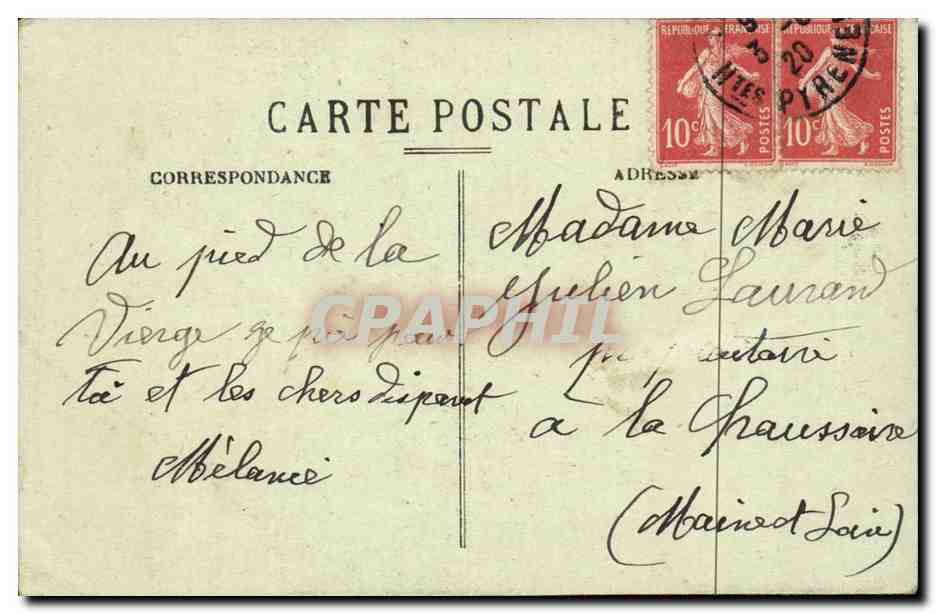 RÉPUBLIQUE FRANÇAISE
10c POSTES
RÉPUBLIQUE FRANÇAISE
10c POSTES
20
Htes PYRENE
CARTE POSTALE
CORRESPONDANCE
ADRESSE
Au pied de la
Vierge ge pri pour
Toi et les chers disparut
Mélanie
Madame Marie
Julien Laurand
a la Chaussaire
(Maine et Loire)
CPAPHIL